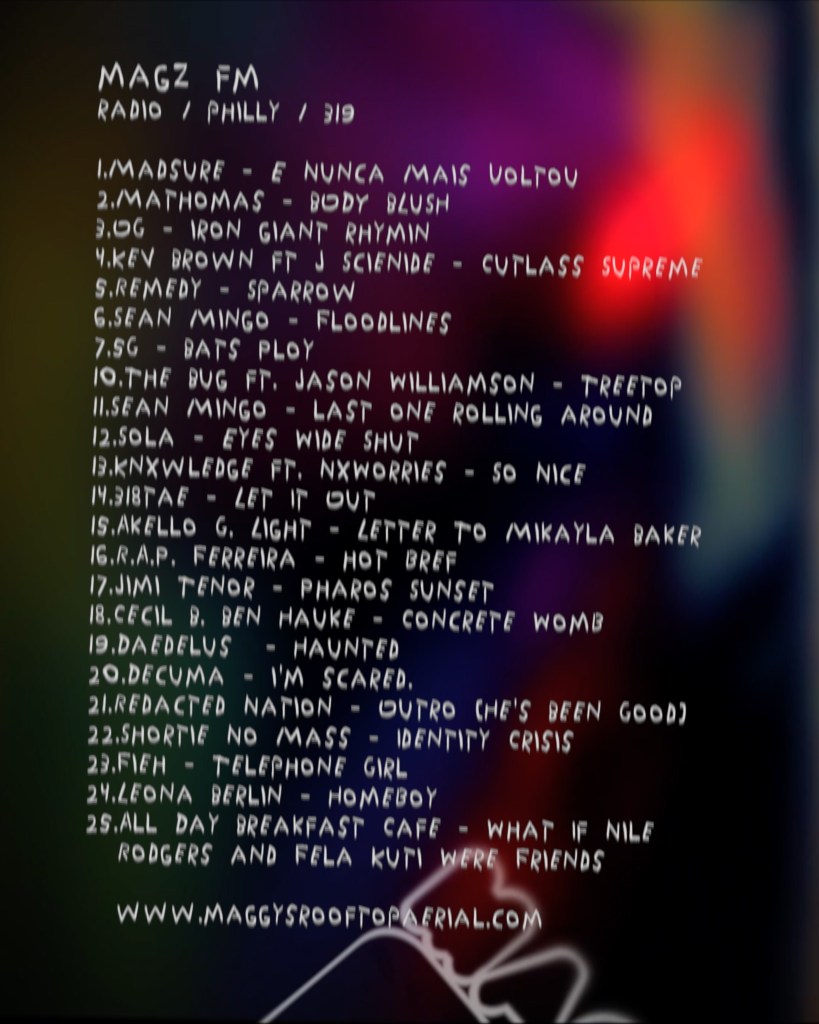 MAGZ FM
RADIO / PHILLY / 319
1.MADSURE - E NUNCA MAIS VOLTOU
2.MATHOMAS - BODY BLUSH
3.OG - IRON GIANT RHYMIN
4.KEV BROWN FT J SCIENIDE - CUTLASS SUPREME
5.REMEDY - SPARROW
6.SEAN MINGO - FLOODLINES
7.SG - BATS PLOY
10.THE BUG FT. JASON WILLIAMSON - TREETOP
11.SEAN MINGO - LAST ONE ROLLING AROUND
12.SOLA - EYES WIDE SHUT
13.KNXWLEDGE FT. NXWORRIES - SO NICE
14.318TAE - LET IT OUT
15.AKELLO G. LIGHT - LETTER TO MIKAYLA BAKER
16.R.A.P. FERREIRA - HOT BREF
17.JIMI TENOR - PHAROS SUNSET
18.CECIL B. BEN HAUKE - CONCRETE WOMB
19.DAEDELUS - HAUNTED
20.DECUMA - I'M SCARED.
21.REDACTED NATION - OUTRO (HE'S BEEN GOOD)
22.SHORTIE NO MASS - IDENTITY CRISIS
23.FIEH - TELEPHONE GIRL
24.LEONA BERLIN - HOMEBOY
25.ALL DAY BREAKFAST CAFE - WHAT IF NILE
RODGERS AND FELA KUTI WERE FRIENDS
WWW.MAGGYSROOFTOPAERIAL.COM